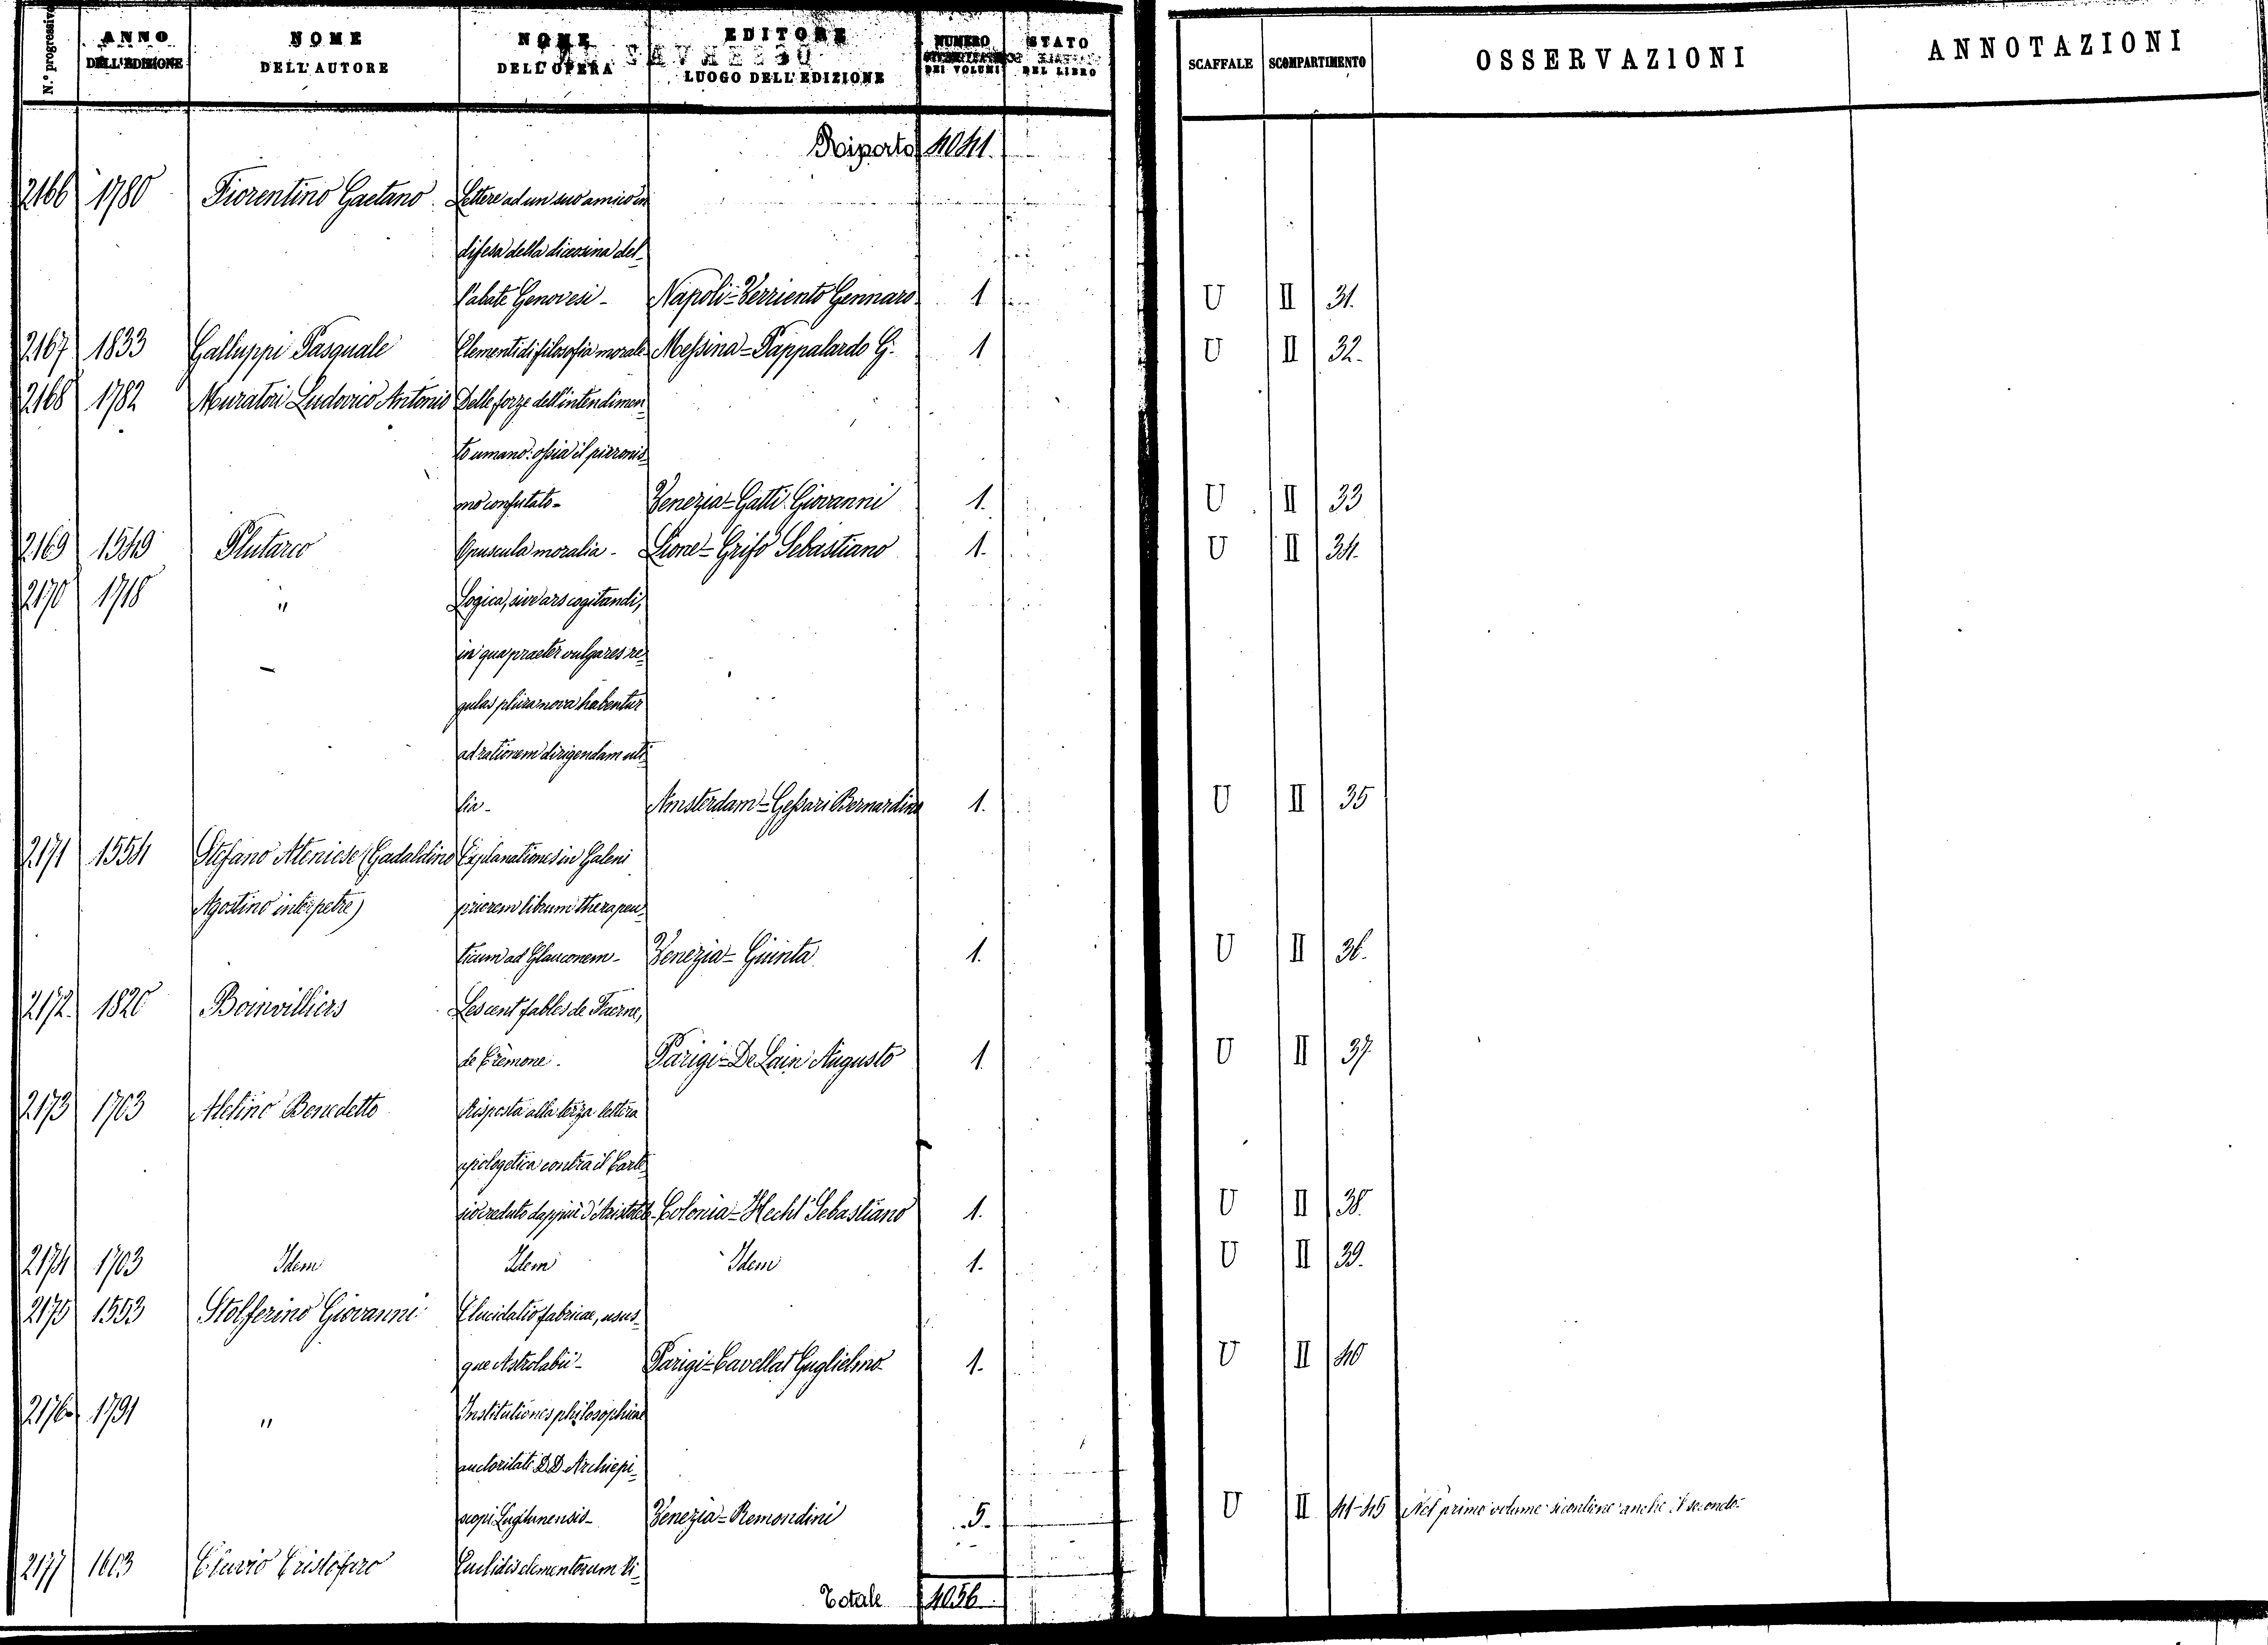 N.° progressivo ANNO DELL'EDIZIONE NOME DELL'AUTORE NOME DELL'OPERA EDITORE LUOGO DELL'EDIZIONE NUMERO DEI VOLUMI STATO DEL LIBRO SCAFFALE SCOMPARTIMENTO OSSERVAZIONI ANNOTAZIONI
Riporto 4041.
2166 1780 Fiorentino Gaetano Lettere ad un suo amico in
difesa della diceosina del-
l'abate Genovesi- Napoli= Verriento Gennaro 1 U II 31.
2167 1833 Galluppi Pasquale Elementi di filosofia morale- Messina= Pappalardo G. 1 U II 32.
2168 1782 Muratori Ludovico Antonio Delle forze dell'intendimen-
to umano: ossia il pirronis-
mo confutato- Venezia= Gatti Giovanni 1. U II 33
2169 1549 Plutarco Opuscula moralia- Lione= Grifo Sebastiano 1. U II 34.
2170 1718 " Logica, sive ars cogitandi,
in qua praeter vulgares re-
gulas plura nova habentur
ad rationem dirigendam uti-
lia- Amsterdam= Gessari Bernardino 1. U II 35
2171 1554 Stefano Ateniese (Gadaldino Explanationes in Galeni
Agostino interpetre) priorem librum therapeu-
ticum ad Glauconem- Venezia= Giunta 1. U II 36.
2172. 1820 Boinvilliers Les cent fables de Faerne,
de Crèmone. Parigi= De Lain Augusto 1. U II 37
2173 1703 Aletino Benedetto Risposta alla terza lettera
apologetica contra il Carte-
sio creduto doppiù d'Aristotele- Colonia= Hecht Sebastiano 1. U II 38.
2174 1703 Idem Idem Idem 1. U II 39.
2175 1553 Stolferino Giovanni Elucidatio fabricae, usus-
que Astrolabii- Parigi= Cavellat Guglielmo 1. U II 40
2176 1791 " Institutiones philosophicae
auctoritate D.D. Archiepi-
scopi Lugdunensis- Venezia= Remondini 5. U II 41-45 Nel primo volume si contiene anche il secondo.
2177 1603 Clavio Cristofaro Euclidis elementorum li-
Totale 4056